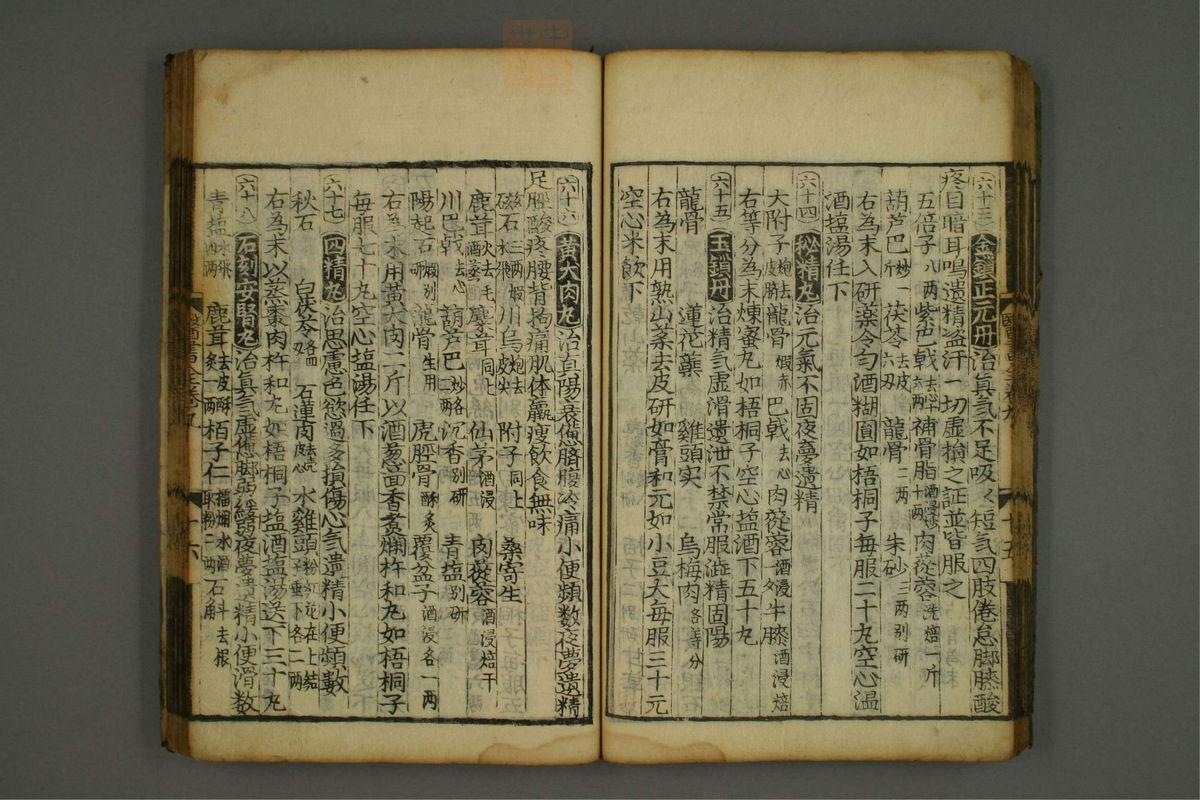 六十三 金鎖正元丹 治真气不足吸〻短气四肢倦怠脚膝酸
疼目暗耳鳴遺精盗汗一切虚損之証並皆服之
五倍子八两 紫巴戟去心十六两 補骨脂酒浸炒十两 肉蓯蓉洗焙一斤
葫芦巴炒一斤 茯苓去皮六刄 龍骨二两 朱砂三两别研
右為末入研藥令勻酒糊圓如梧桐子每服二十丸空心温
酒塩湯任下
六十四 秘精丸 治元氣不固夜夢遺精
大附子炮去皮臍 龍骨煅赤 巴戟去心 肉蓯蓉酒浸一夕 牛膝酒浸焙
右等分為末煉蜜丸如梧桐子空心盐酒下五十丸
六十五 玉鎖丹 治精气虚滑遺泄不禁常服澁精固陽
龍骨 蓮花蘂 雞頭实 烏梅肉各等分
右為末用熟山藥去皮研如膏和元如小豆大每服三十元
空心米飲下
六十六 黄犬肉丸 治真陽衰憊臍腹冷痛小便頻数夜夢遺精
足脛酸疼腰背拘痛肌体羸瘦飲食無味
磁石三两煅水飛 川烏炮去皮尖 附子同上 桑寄生
鹿茸火去毛酒蒸 麋茸同上 仙茅酒浸 肉蓯蓉酒浸焙干
川巴戟去心 葫芦巴炒各二两 沉香别研 青塩别研
陽起石煅别研 龍骨生用 虎脛骨酥炙 覆盆子酒浸各一两
右為末用黄犬肉二斤以酒葱茴香煑爛杵和丸如梧桐子
每服七十丸空心塩湯任下
六十七 四精丸 治思慮色慾過多損傷心气遺精小便頻數
秋石 白茯苓各四刄 石蓮肉去壳皮心 水雞頭粉花在上結子垂下各二两
右為末以蒸棗肉杵和丸如梧桐子塩酒塩湯送下三十丸
六十八 石刻安腎丸 治真气虚憊脚弱緩夜夢遺精小便滑数
青塩水飛四两 鹿茸去皮酥炙一两 栢子仁 石斛去根